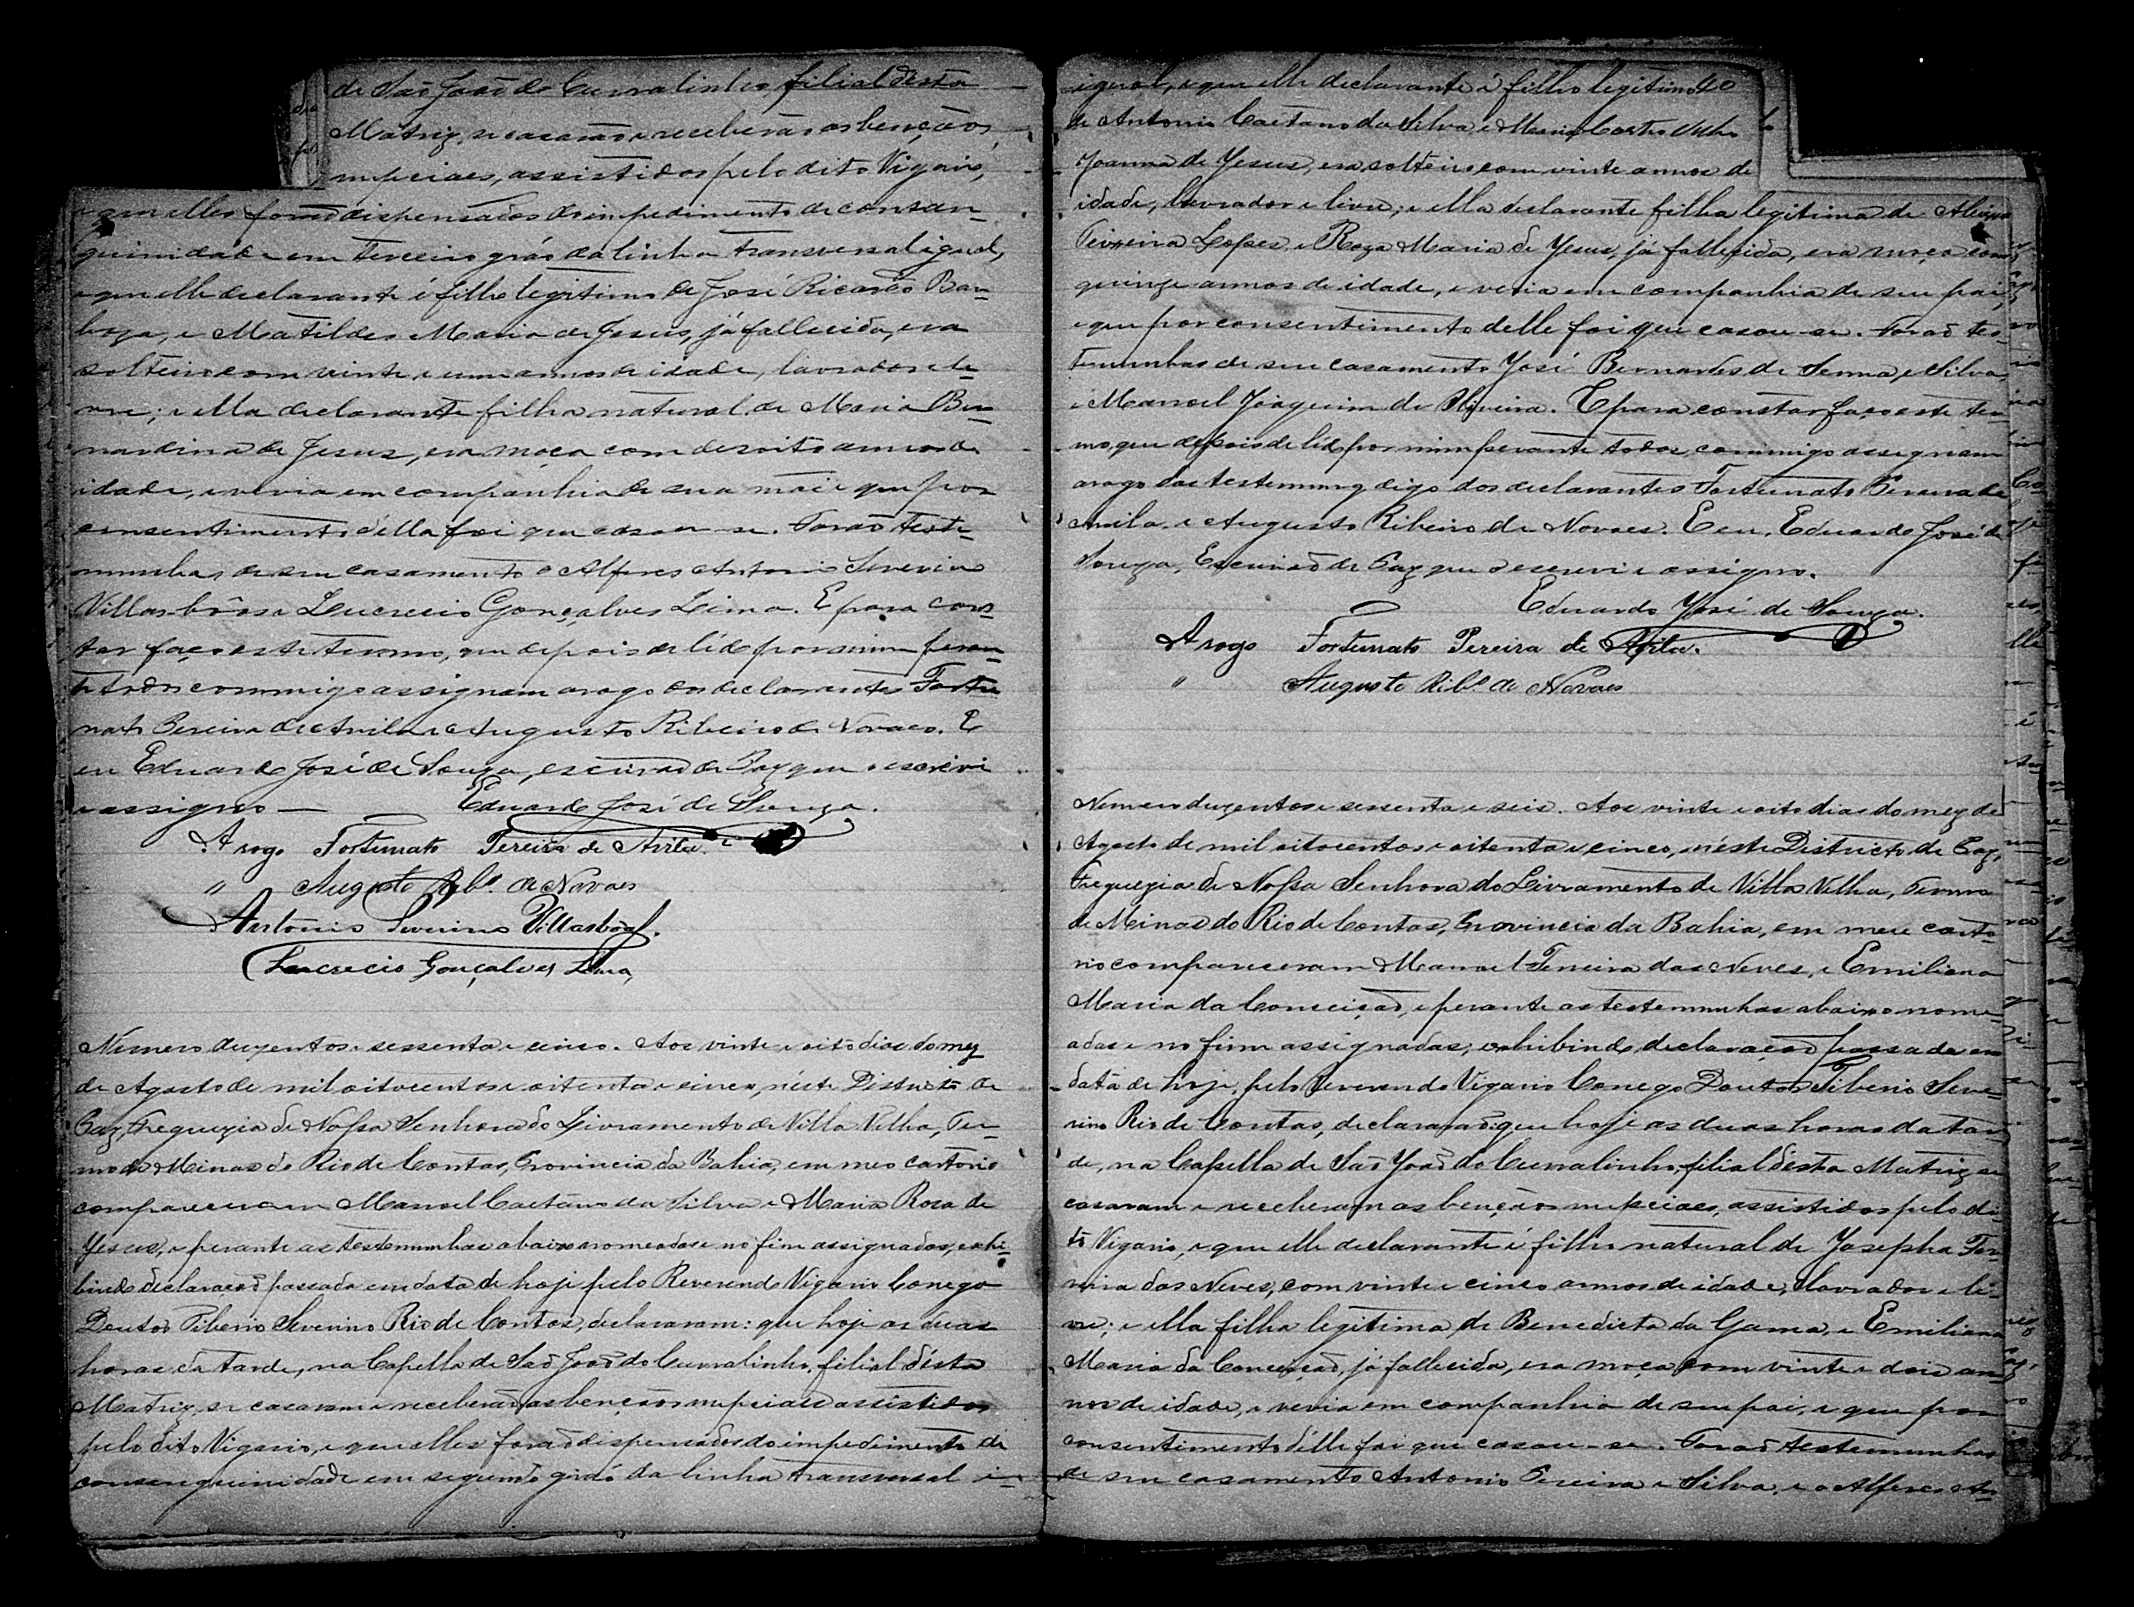 de São João do Curralinho, filial desta
Matriz, se casarão e receberão as benções
nupciaes, assistidos pelo dito Vigario,
e que elles forão dispensados do impedimento de consan-
guinidade em terceiro gráo da linha transversal igual,
e que elle declarante é filho legitimo de José Ricardo Bar-
boza, e Matildes Maria de Jesus, já fallecida, era
solteiro com vinte e um annos de idade, lavrador e li-
vre; e ella declarante filha natural de Maria Ber-
nardina de Jesus, era moça com desoito annos de
idade, e vevia em companhia de sua mãi e que por
consentimento d'ella foi que casou-se. Forão teste-
munhas de seu casamento o Alferes Antonio Severino
Villasbôas e Lucrecio Gonçalves Lima. E para cons-
tar faço este termo, que depois de lido por mim peran-
te todos commigo assignam arogo dos declarantes Fortu-
nato Pereira de Avila e Augusto Ribeiro de Novaes. E
eu Eduardo José de Souza, escrivão de Paz que o escrevi
e assigno — Eduardo José de Souza.
Arogo Fortunato Pereira de Avila.
" Augusto Rib.º de Novaes
Antonio Severino Villasbôas.
Lucrecio Gonçalves Lima
Numero duzentos e sessenta e cinco. Aos vinte e oito dias do mez
de Agosto de mil oitocentos e oitenta e cinco, n'este Districto de
Paz, Freguezia de Nossa Senhora do Livramento de Villa Velha, Ter-
mo de Minas do Rio de Contas, Provincia da Bahia, em meo cartorio
compareceram Manoel Caetano da Silva e Maria Rosa de
Yesus, e perante as testemunhas abaixo nomeadas e no fim assignadas, exhi-
bindo declaração passada em data de hoje pelo Reverendo Vigario Conego
Doutor Tiberio Severino Rio de Contas, declararam: que hoje as duas
horas da tarde, na Capella de São João do Curralinho, filial désta
Matriz, se casaram e receberão as benções nupciaes assistidos
pelo dito Vigario, e que elles forão dispensados do impedimento de
consanguinidade em segundo gráo da linha transversal i-
igual, e que elle declarante é filho legitimo 40
de Antonio Caetano da Silva e Maria
Joanna de Yesus, era solteiro com vinte annos de
idade, lavrador e livre; e ella declarante filha legitima de
Teixeira Lopes e Roza Maria de Yesus, já fallecida, era moça com
quinze annos de idade, e vevia em companhia de seu pai,
e que por consentimento delle foi que casou-se. Forão tes-
temunhas de seu casamento José Bernardes de Senna e Silva,
e Manoel Joaquim de Oliveira. E para constar faço este ter-
mo, que depois de lido por mim perante todos, commigo assignam
arogo das testemung digo dos declarantes Fortunato Pereira de
Avila e Augusto Ribeiro de Novaes. E eu, Eduardo José de
Souza, Escrivão de Paz que o escrevi e assigno.
Eduardo José de Souza.
Arogo Fortunato Pereira de Avila.
" Augusto Rib.º de Novaes
Numero duzentos e sessenta e seis. Aos vinte e oito dias do mez de
Agosto de mil oitocentos e oitenta e cinco, n'éste Districto de Paz,
Freguezia de Nossa Senhora do Livramento de Villa Velha, Termo
de Minas do Rio de Contas, Provincia da Bahia, em meu carto-
rio compareceram Manoel Ferreira das Neves, e Emiliana
Maria da Conceição, e perante as testemunhas abaixo nome-
adas e no fim assignadas, exhibindo declaração passada em
data de hoje, pelo Reverendo Vigario Conego Doutor Tiberio Seve-
rino Rio de Contas, declararão: que hoje as duas horas da tar-
de, na Capella de São João do Curralinho, filial désta Matriz se
casaram e receberam as benções nupciaes, assistidos pelo di-
to Vigario, e que elle declarante é filho natural de Josepha Fer-
reira das Neves, com vinte e cinco annos de idade, lavrador e li-
vre; e ella filha legitima de Benedicto da Gama, e Emiliana
Maria da Conceição, já fallecida, era moça com vinte e dois an-
nos de idade, e vevia em companhia de seu pai, e que por
consentimento d'elle foi que casou-se. Forão testemunhas
de seu casamento Antonio Pereira e Silva, e o Alferes An-